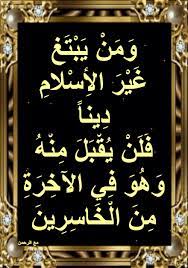 وَمَنْ يَبْتَغِ
غَيْرَ الأِسْلاَمِ
دِيناً
فَلَنْ يُقْبَلَ مِنْهُ
وَهُوَ فِي الآخِرَةِ
مِنَ الْخَاسِرِين
مع الرحمن